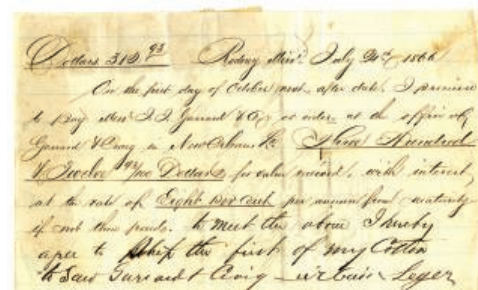 Dollars 312 93 Rodney Miss. July 24th 1866
On the first day of October next, after date, I promise
to pay Mess J. J. Garrard & Co, or order, at the office of
Garrard & Craig in New Orleans La Three Hundred
& Twelve 93/100 Dollars for value received, with interest
at the rate of Eight per cent per annum from maturity
if not then paid. to meet the above I hereby
agree to Ship the first of my Cotton
to Said Garrard & Craig